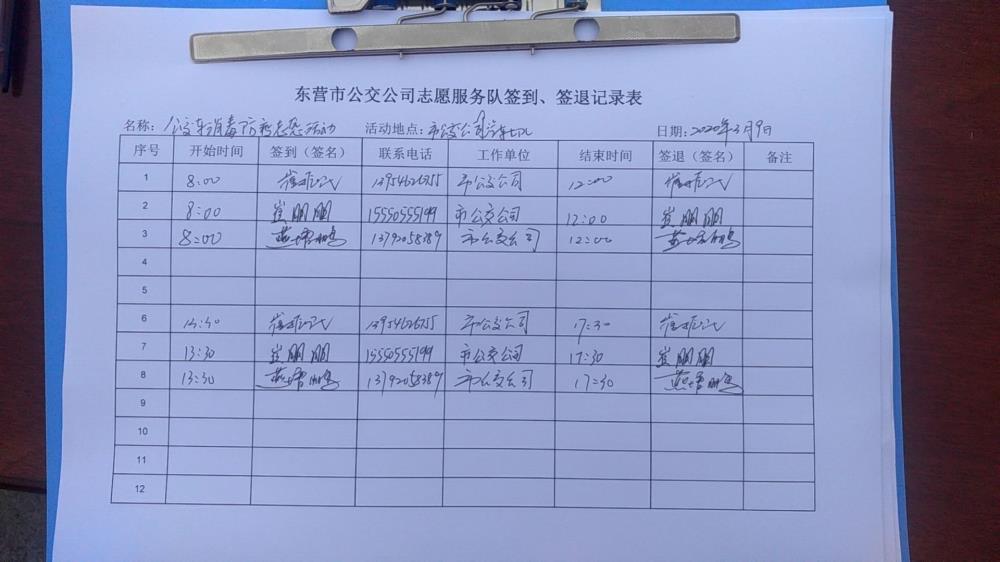 东营市公交公司志愿服务队签到、签退记录表
名称：公交车消毒防疫志愿活动 活动地点：市公交公司 日期：2020年3月9日
序号 开始时间 签到（签名） 联系电话 工作单位 结束时间 签退（签名） 备注
1 8:00 13954626755 市公交公司 12:00
2 8:00 崔朋朋 15550555199 市公交公司 12:00 崔朋朋
3 8:00 13792058389 市公交公司 12:00
4
5
6 13954626755 市公交公司 17:30
7 13:30 崔朋朋 15550555199 市公交公司 17:30 崔朋朋
8 13:30 13792058389 市公交公司 17:30
9
10
11
12